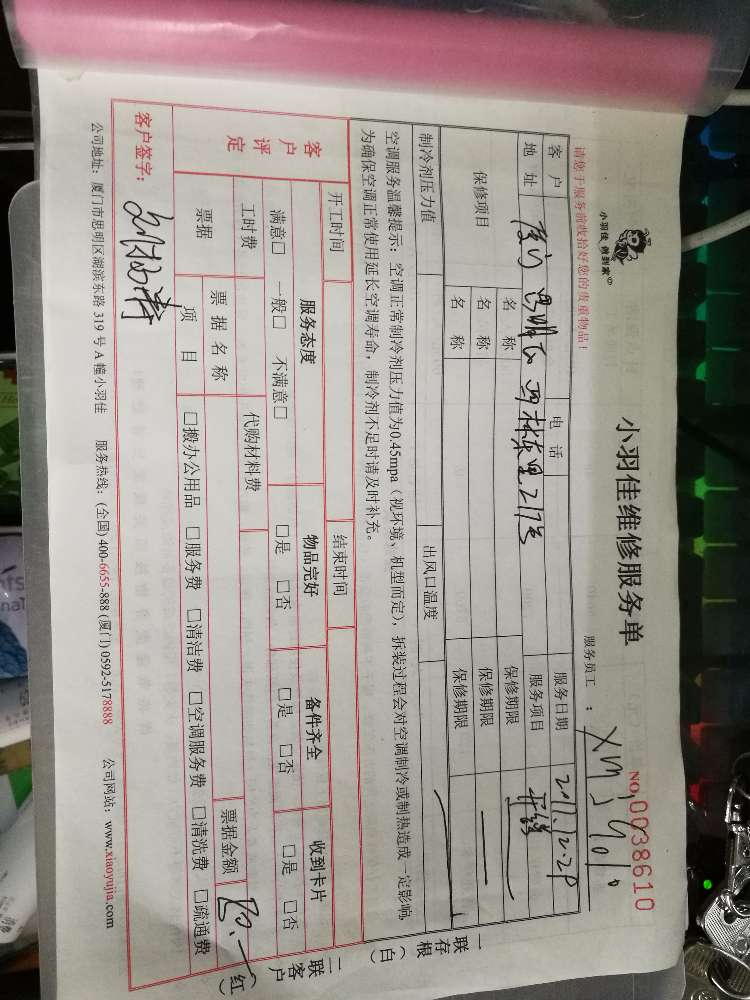 小羽佳 做到家
小羽佳维修服务单
NO.0038610
请您于服务前收拾好您的贵重物品!
服务员工:
客户 电话 服务日期
地址 厦门 思明区 服务项目
保修项目 名称 保修期限
名称 保修期限
名称 保修期限
制冷剂压力值 出风口温度
空调服务温馨提示:空调正常制冷剂压力值为0.45mpa(视环境、机型而定),拆装过程会对空调制冷或制热造成一定影响,
为确保空调正常使用延长空调寿命,制冷剂不足时请及时补充。
开工时间 结束时间
客户评定 服务态度 物品完好 备件齐全 收到卡片
满意□ 一般□ 不满意□ □是 □否 □是 □否 □是 □否
工时费 代购材料费
票据 票据名称 票据金额
项目 □搬办公用品 □服务费 □清洁费 □空调服务费 □清洗费 □疏通费
客户签字:
公司地址:厦门市思明区湖滨东路319号A幢小羽佳 服务热线:(全国)400-6655-888 (厦门)0592-5178888 公司网站:www.xiaoyujia.com
一联存根(白)
二联客户(红)